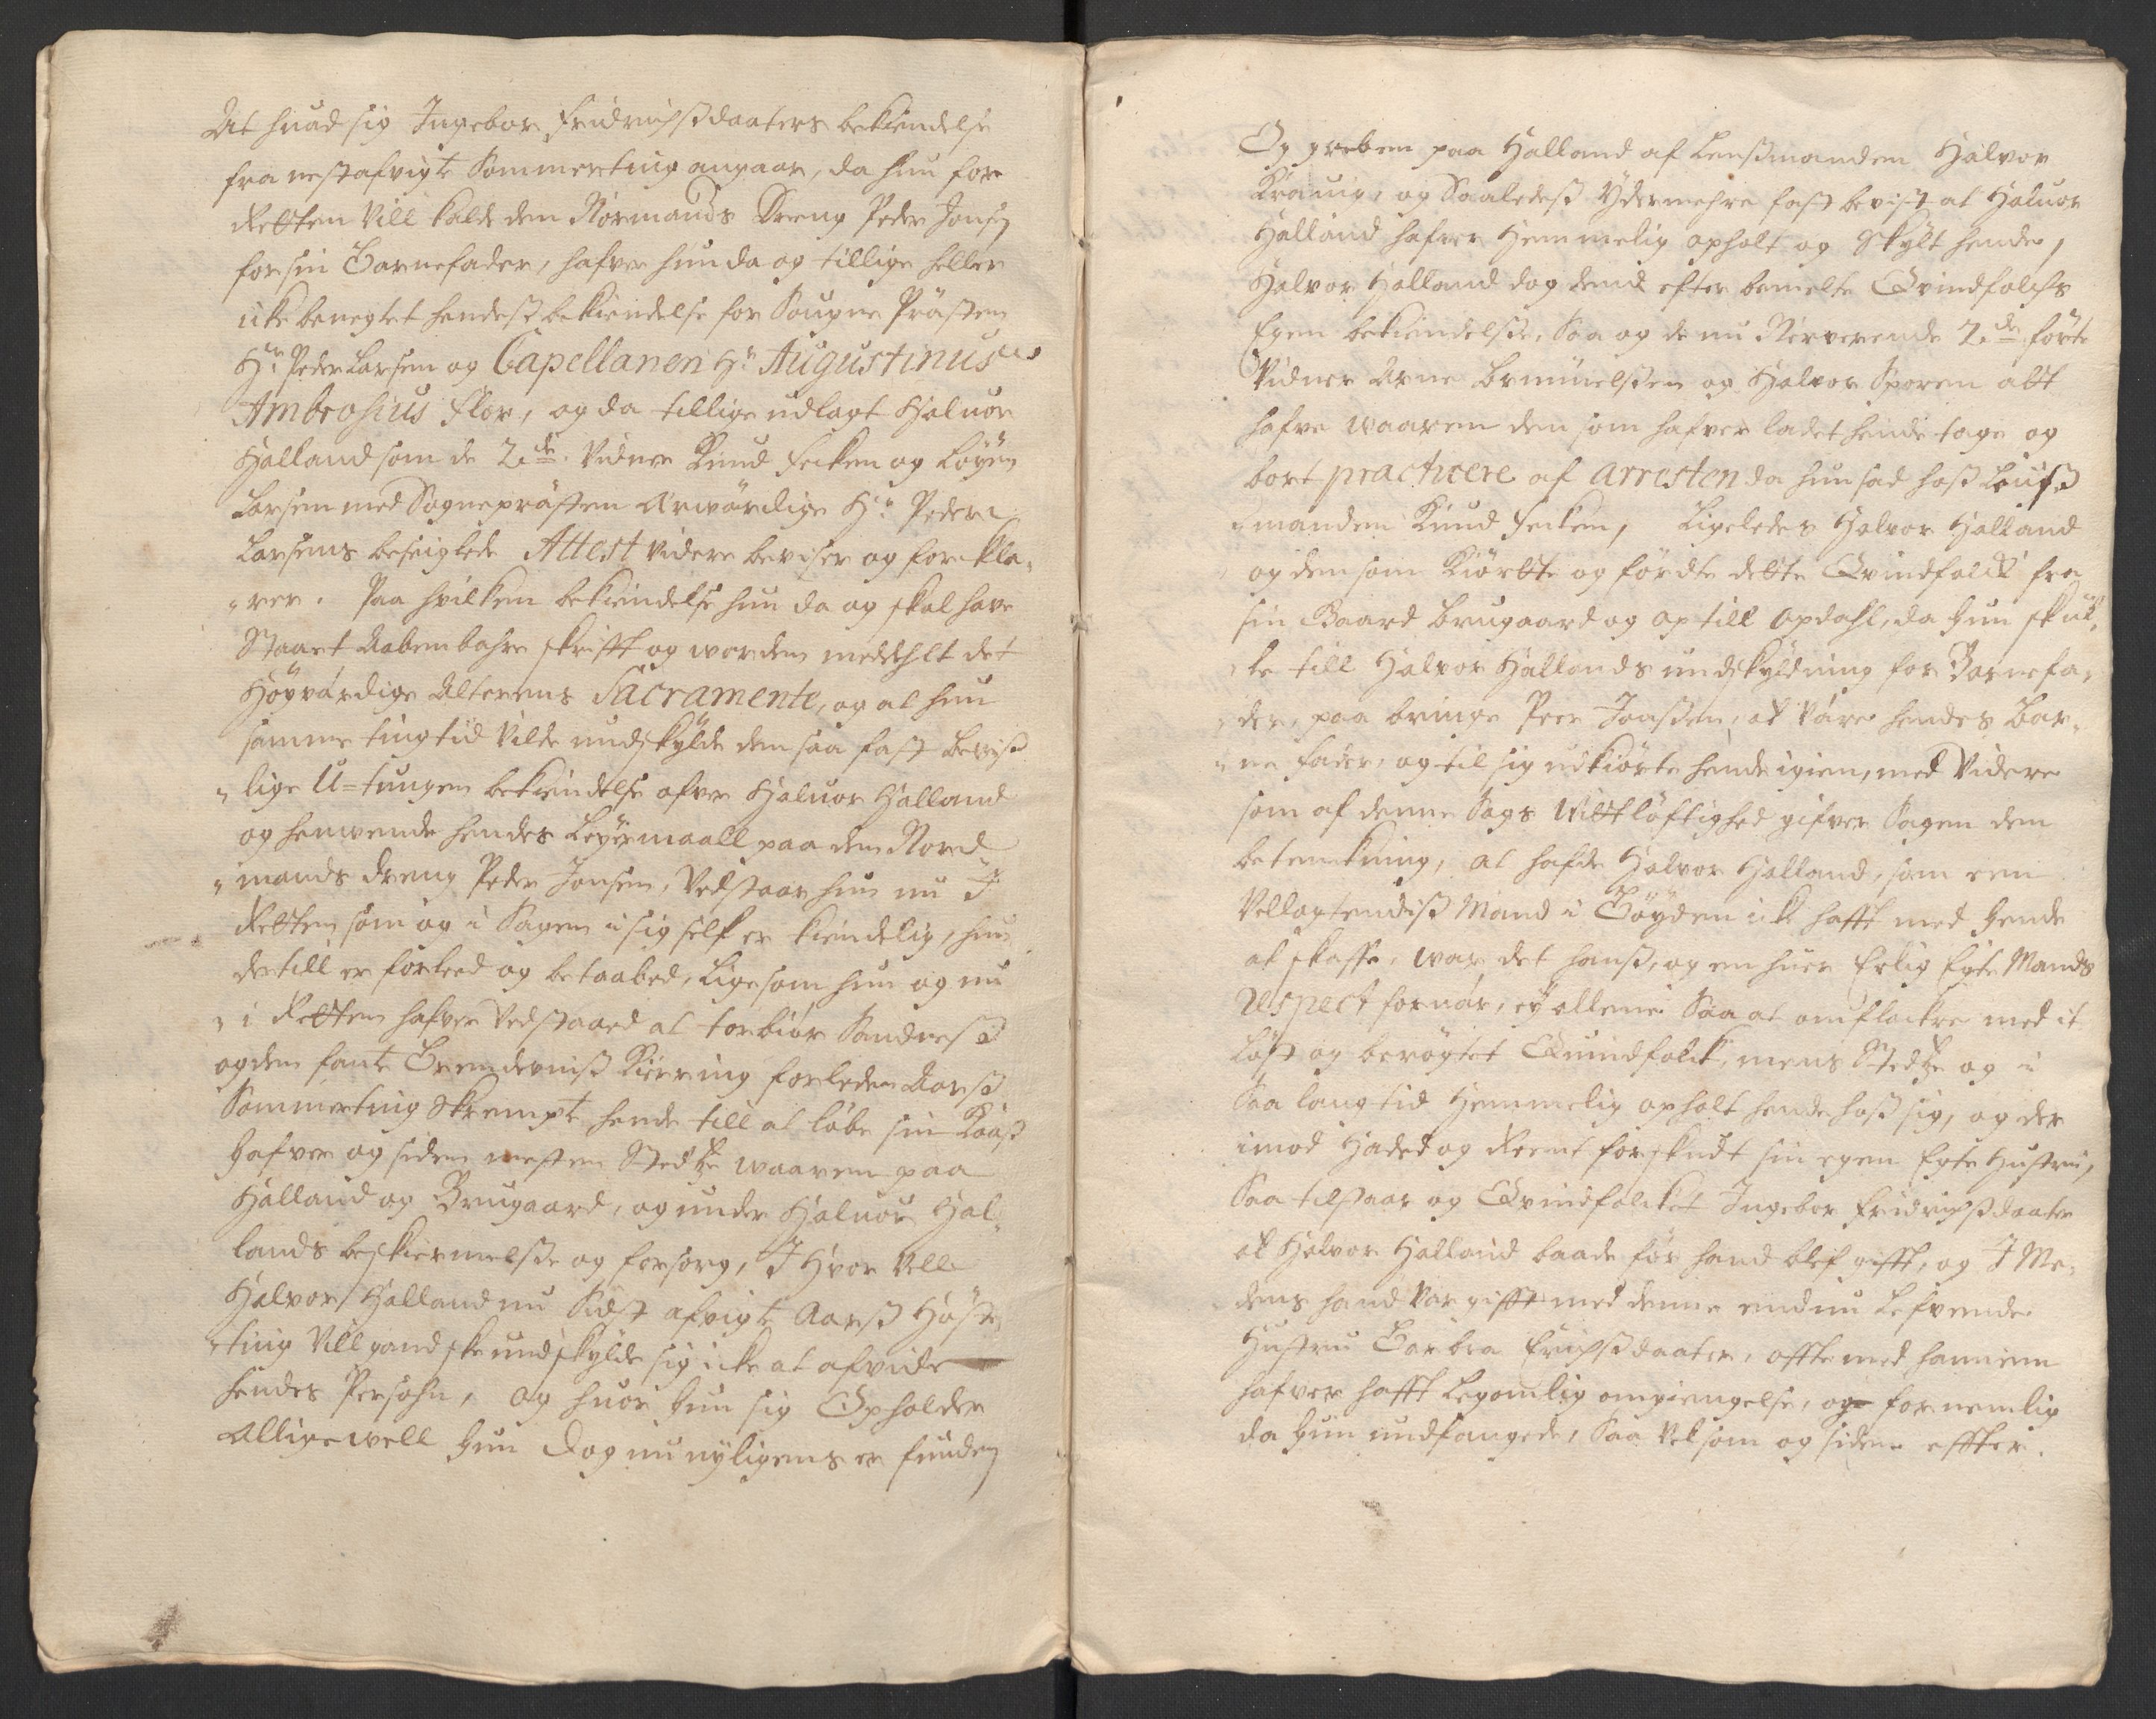 At huad sig Ingebor Fridrichsdaaters bekiendelse
fra nestafvigte Sommerting angaar, da hun for
Retten vill kalde den Normands Dreng Peder Jonsen
for sin Barnefader, hafver hun da og tillige heller
icke benegtet hendeß bekiendelse for Sougne Præsten
Hr. Peder Larsen og Capellanen Hr. Augustinus
Ambrosius Flor, og da tillige udlagt Haluor
Halland som de 2de. Vidner Knud Fecken og
Larsen med Sognepræsten Ærværdige Hr. Peder
Larsens beseiglede Attest videre beviser og forekla„
„rer. Paa hvilken bekiendelse hun da og skal have
Staaet Aabenbahre skrifft og worden meddehlt det
Høyværdige Alterens Sacramente, og at hun
samme tingtid vilde undskylde den saa fast beviß
„lige U-tungen bekiendelse ofver Haluor Halland
og henwende hendes Leyermaall paa den Nord
„mands dreng Peder Jonsen, vedstaar hun nu I
Retten som og i Sagen i sig self er kiendelig, hun
dertill er forleed og betaabed, Ligesom hun og nu
„i Retten hafver vedstaaed at Torbiør Sandneß
og den fante Kierring forleden Aarß
Sommerting Skrempt hende till at løbe sin Kaaß
hafver og siden mesten Stedtze waaren paa
Halland og Brugaard, og under Haluor Hal„
lands beskiermelse og forsorg, I Hvor vell
Halvor Halland nu Sidst afvigte Aarß Høste
„ting vill gandske undskylde sig icke at afvide
hendes Persohn, og huor hun sig Opholder
Alligewell hun dog nu nyligens er funden
Og greben paa Halland af Lensmanden Halvor
Kraavig, og Saaledeß Ydermehre fast bevist at Haluor
Halland hafver Hemmelig opholt og Skylt hende,
Halvor Halland dog lend efter bemelte Qvindfolchs
Egen bekiendelse, Saa og de nu Nerverende 2de førte
Vidner Arne Brynnelsen og Halvor Sporen att
hafve waaren den som hafver ladet hende tage og
bort practicere af arresten da hun sad hoß Lenß
„manden Knud Fecken, Ligeledes Halvor Halland
og den som Kiørtte og førdte dette Qvindfolck fra
sin Gaard Brugaard og op till Opdahl, da hun skul„
„le till Halvor Hallands undskyldning for Barnefa„
„der, paa bringe Peer Jonsen, at være hendes Bar„
„ne fader, og til sig udkiørte hende igien, med videre
som af denne Sags Vittløftighed gifver Sagen dem
betenckning, at hafde Halvor Halland, som een
Vellagtendiß Mand i Bøyden icke hafft med hende
at skaffe, war det hanß, og en huer Erlig Egte Mands
respect fornær, ey allene Saa at omflackre med it
Løst og berøgtet Quindfolck, mens Stedtze og i
Saa lang tid Hemmelig opholt hende hoß sig, og der
imod Haded og Reent forskudt sin egen Egte Hustru,
Saa tilstaar og Qvindfolcket Ingebor Fridrichsdaater
at Halvor Halland baade før hand blef gifft, og I Me„
dens hand var gifft med denne endnu Lefvende
Hustru Barbra Erichsdaater, offte med hannem
hafver hafft Legomlig omgiengelse, og fornemlig
da hun undfangede, Saa vel som og siden effter.